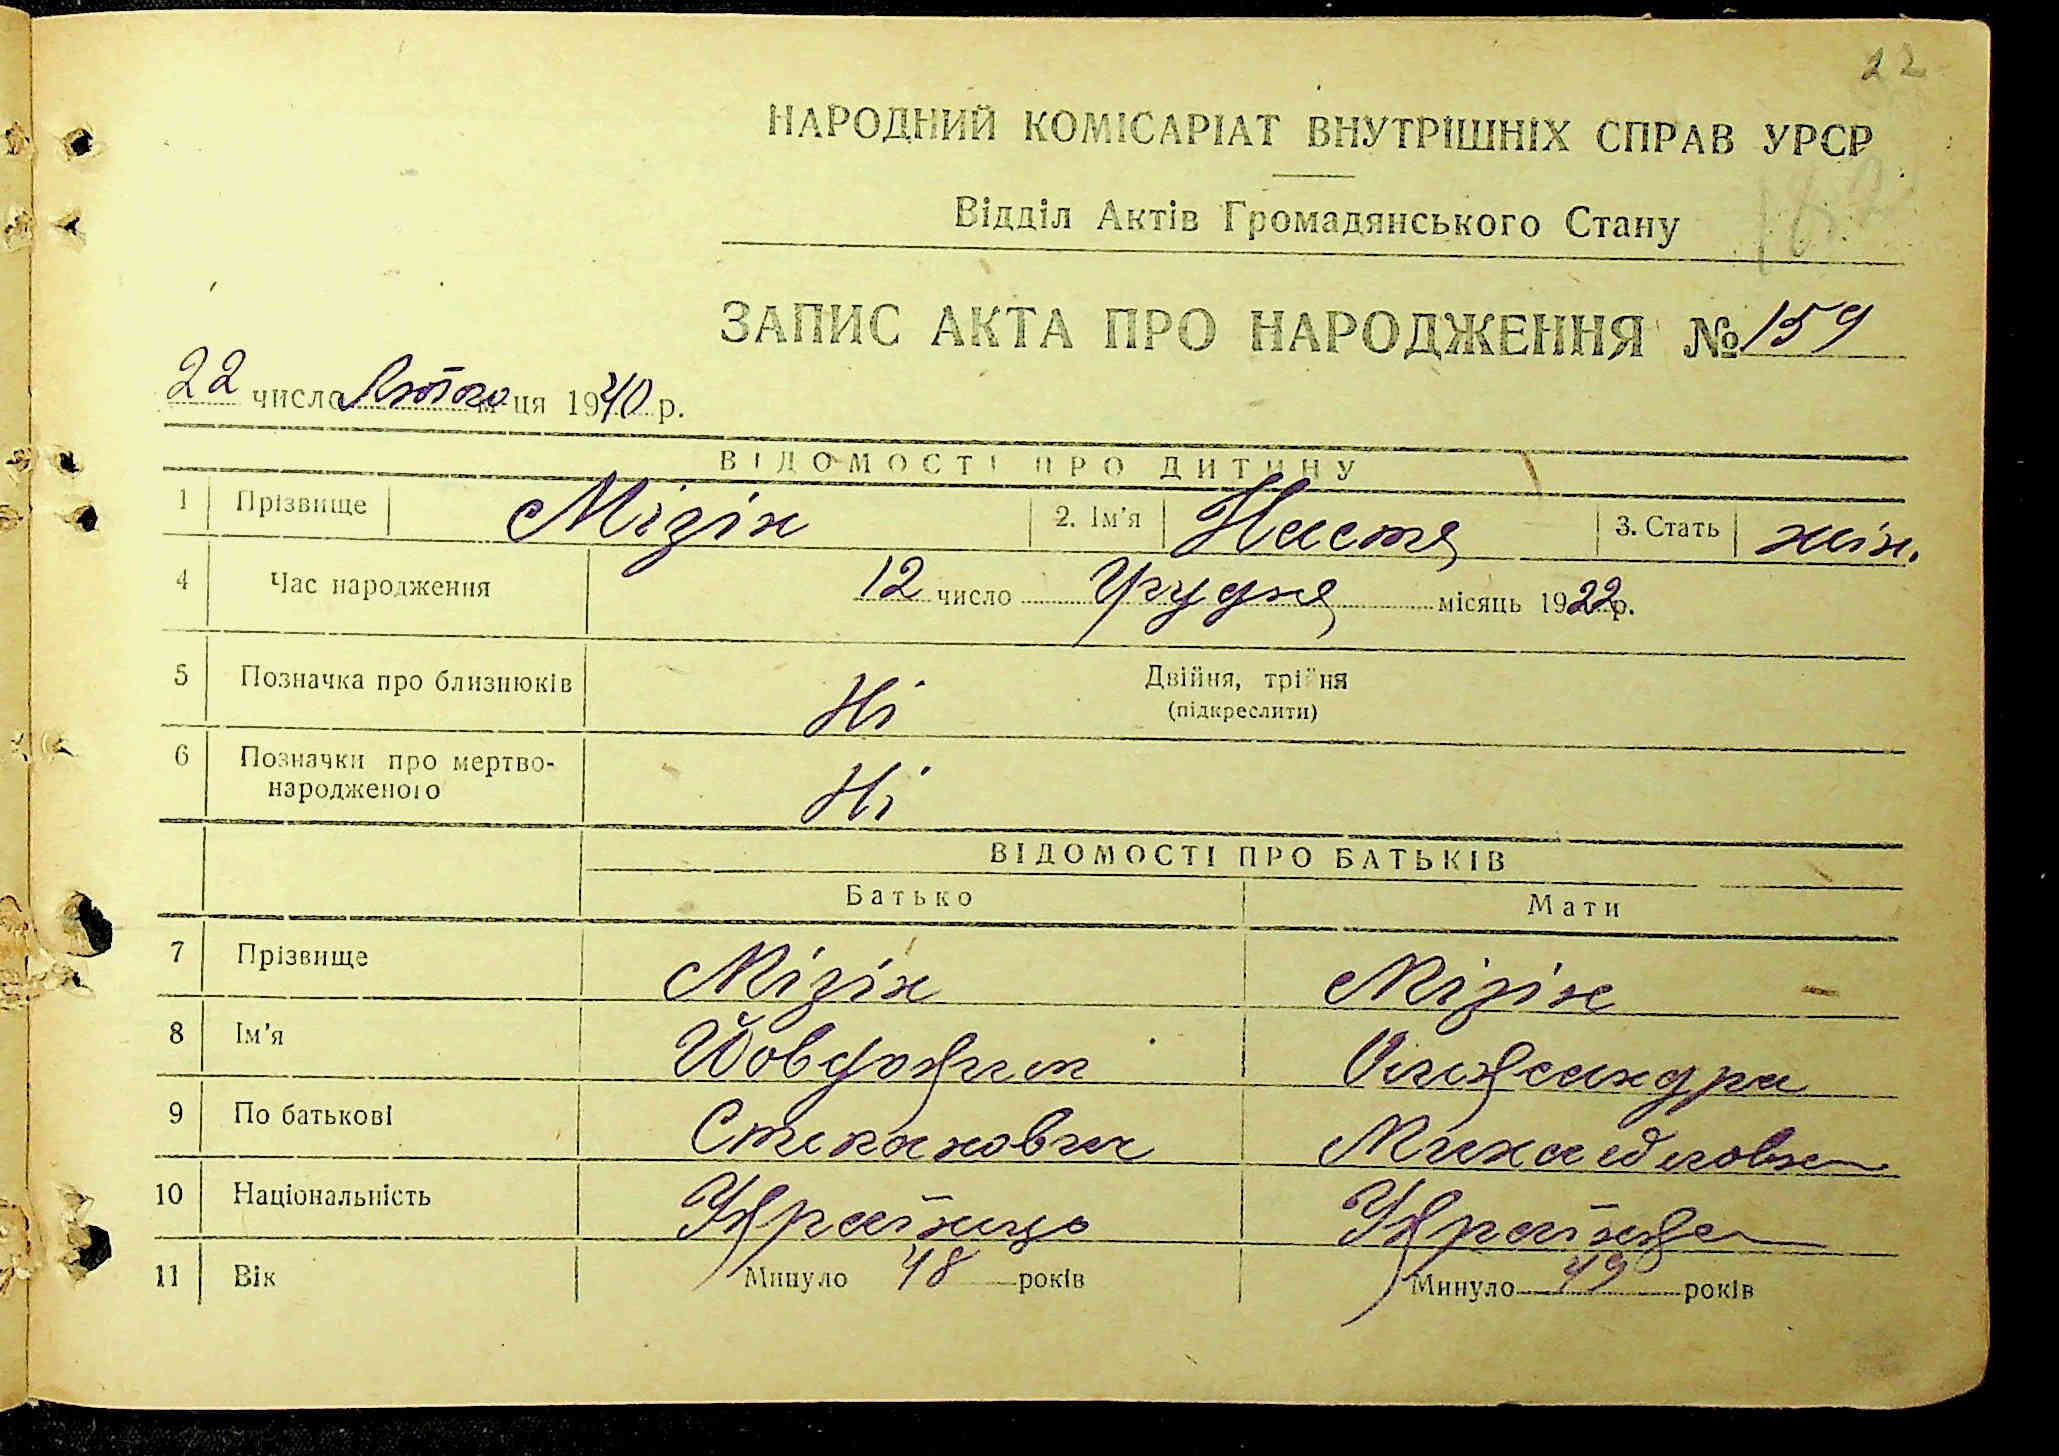 22
НАРОДНИЙ КОМІСАРІАТ ВНУТРІШНІХ СПРАВ УРСР
Відділ Актів Громадянського Стану
ЗАПИС АКТА ПРО НАРОДЖЕННЯ №159
22 число Лютого м-ця 1940 р.
ВІДОМОСТІ ПРО ДИТИНУ
1 Прізвище Мізін 2. Ім'я Настя 3. Стать жін.
4 Час народження 12 число Грудня місяць 1922 р.
5 Позначка про близнюків Ні Двійня, трійня
(підкреслити)
6 Позначки про мертво-
народженого Ні
ВІДОМОСТІ ПРО БАТЬКІВ
Батько Мати
7 Прізвище Мізін Мізін
8 Ім'я Йовдоким Олександра
9 По батькові Степанович Михайловна
10 Національність Українець Українка
11 Вік Минуло 48 років Минуло 49 років